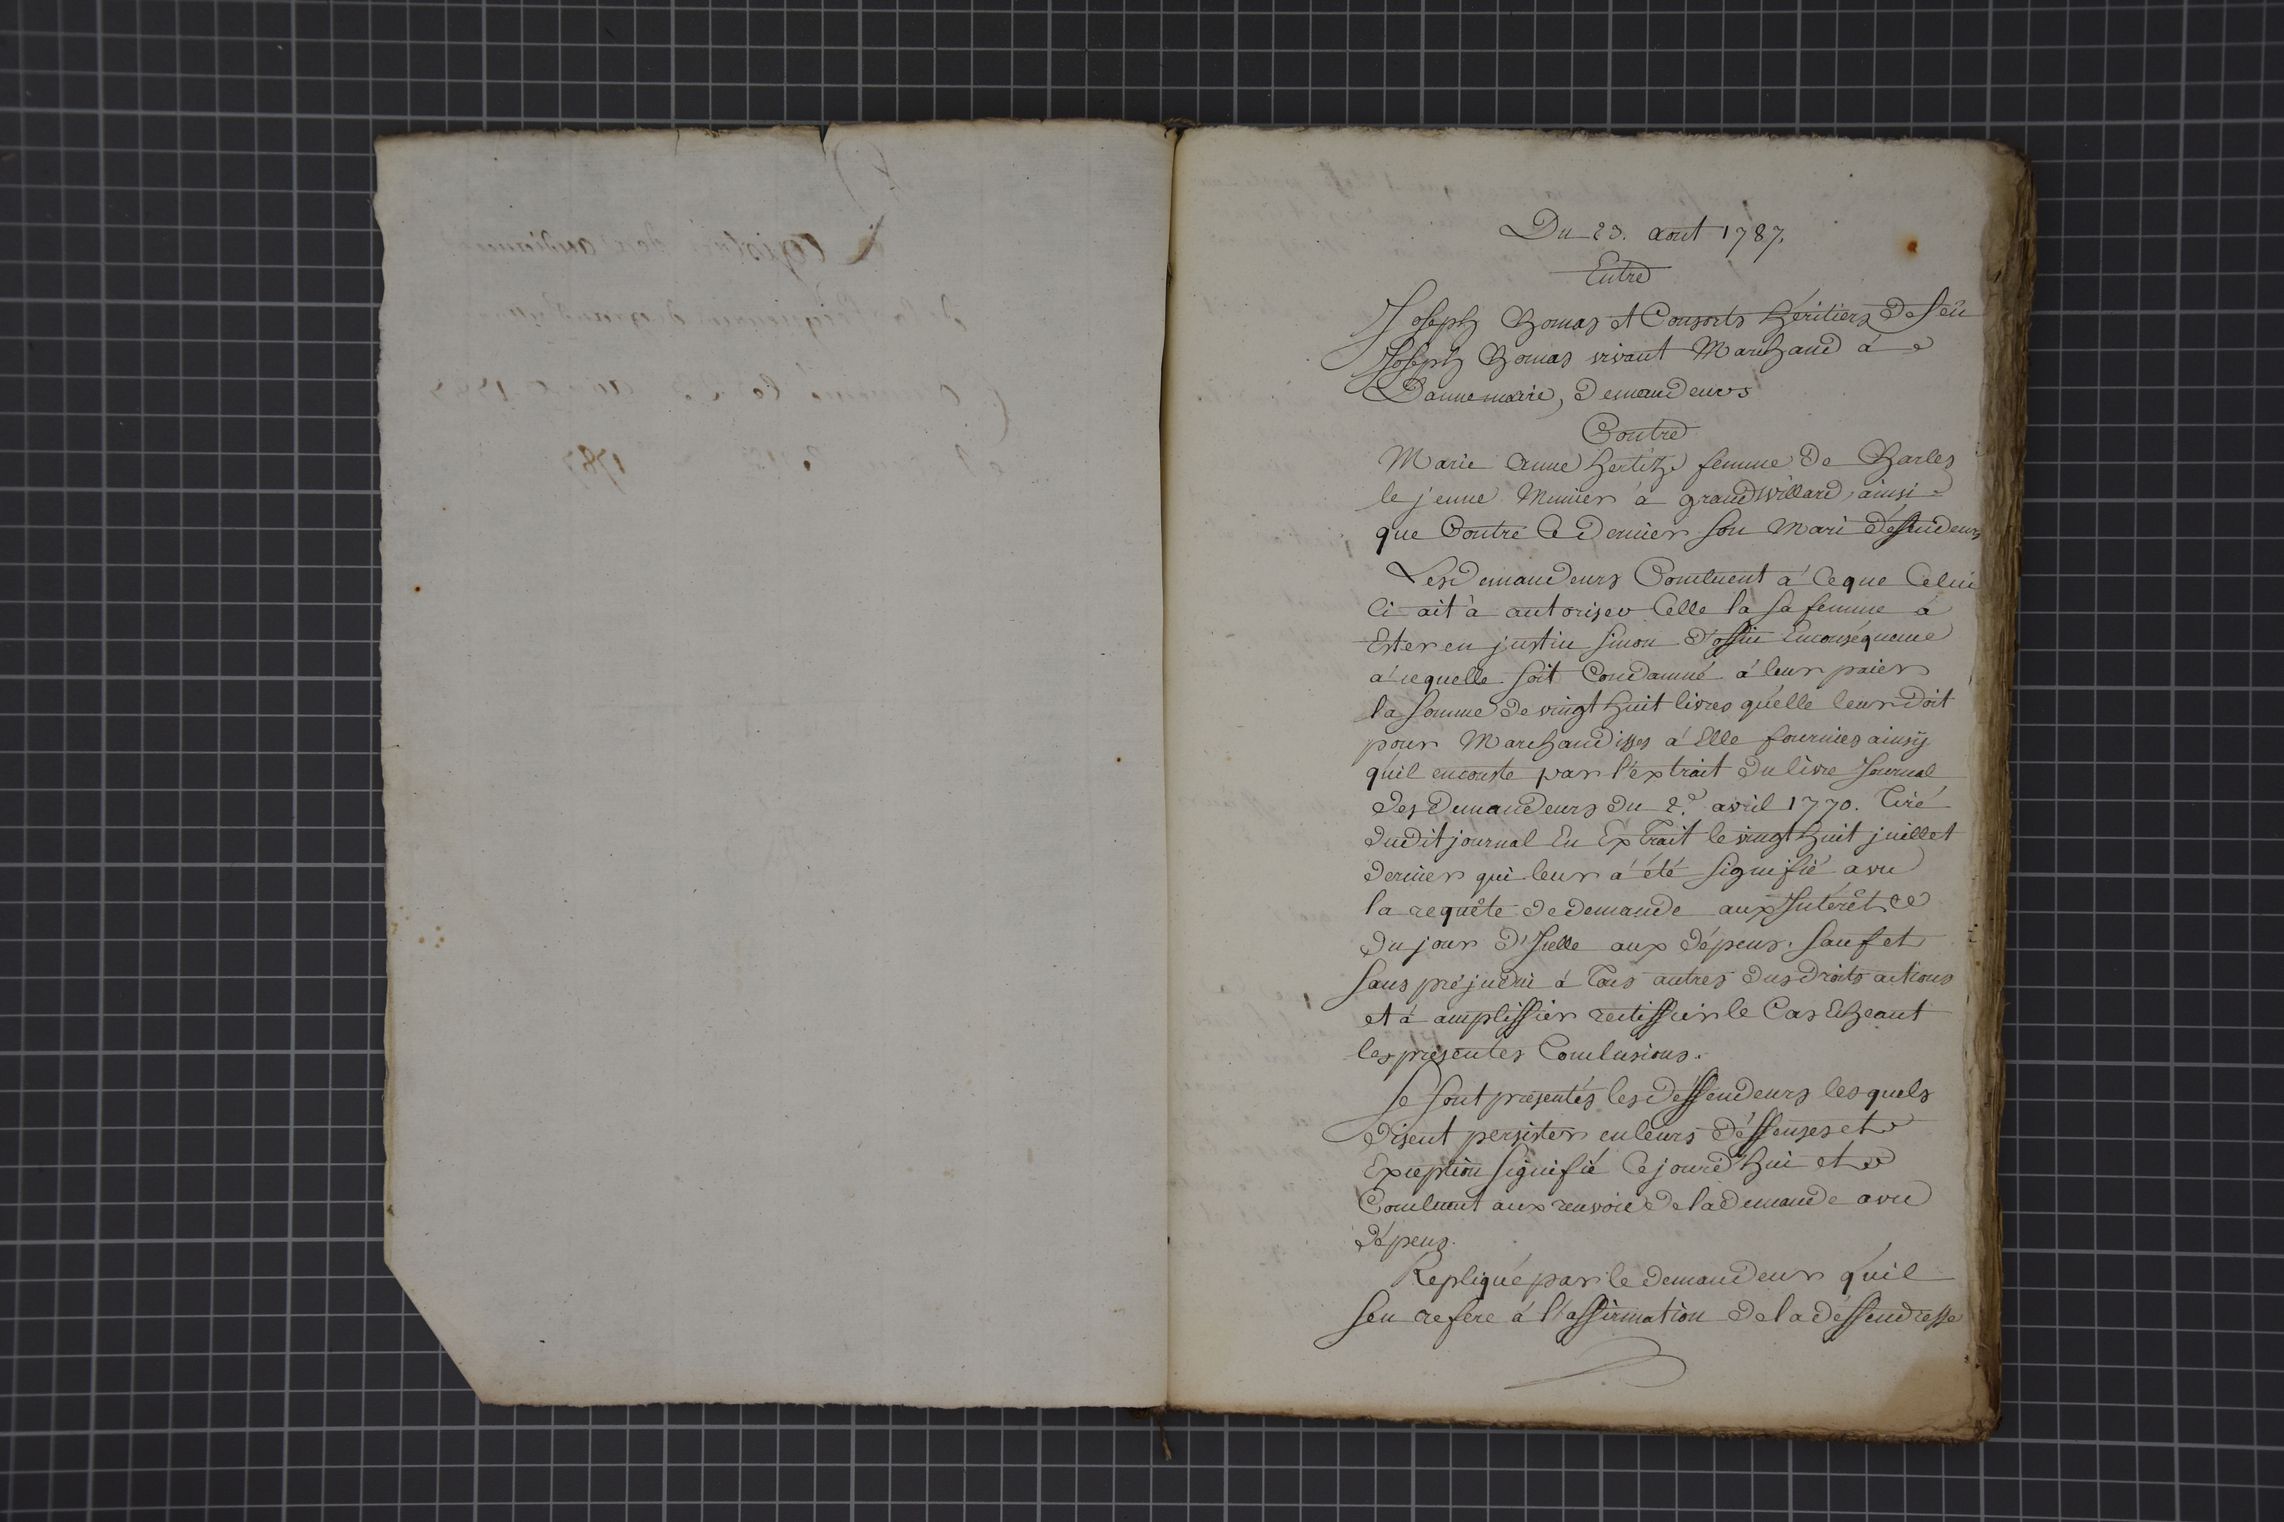 Du 23. aout 1787.
Entre
Joseph Thomas et Consorts héritiers de feü
Joseph Thomas vivant Marchand à
Dannemarie, Demandeurs
Contre
Marie Anne hertzé femme de Charles
le jeune Munier à grandvillard, ainsi
que Contre Ce Dernier son Mari déffendeurs
Les Demandeurs Concluent à Ceque Celui
Ci ait à autoriser Celle la sa femme à
Ester en justice sinon d'office Enconséquence
à cequelle soit Condamné à leur paier
la somme de vingt huit livres qu'elle leur doit
pour Marchandises à Elle fournies ainsy
qu'il enconste par l'extrait du livre Journal
des Demandeurs du 2e. avril 1770. Tiré
dudit journal En Extrait le vingt huit juillet
dernier qui leur à été signifié avec
la requête de demande aux Intérêt
du jour d'Icelle aux dépens. sauf et
sans préjudice à Tous autres dus droits actions
et à ampliffier rectiffier le Cas Echeant
les présentes Conclusions.
se sont présentés les Deffendeurs lesquels
disent persister en leurs déffenses et
Exception signifié Cejourd'hui et
Concluent aux renvoie de la demande avec
dépens.
Repliqué par le demandeur qu'il
sen refere à l'affirmation de la déffendresse